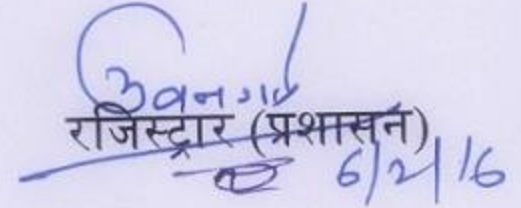 रजिस्ट्रार (प्रशासन)
6/2/16